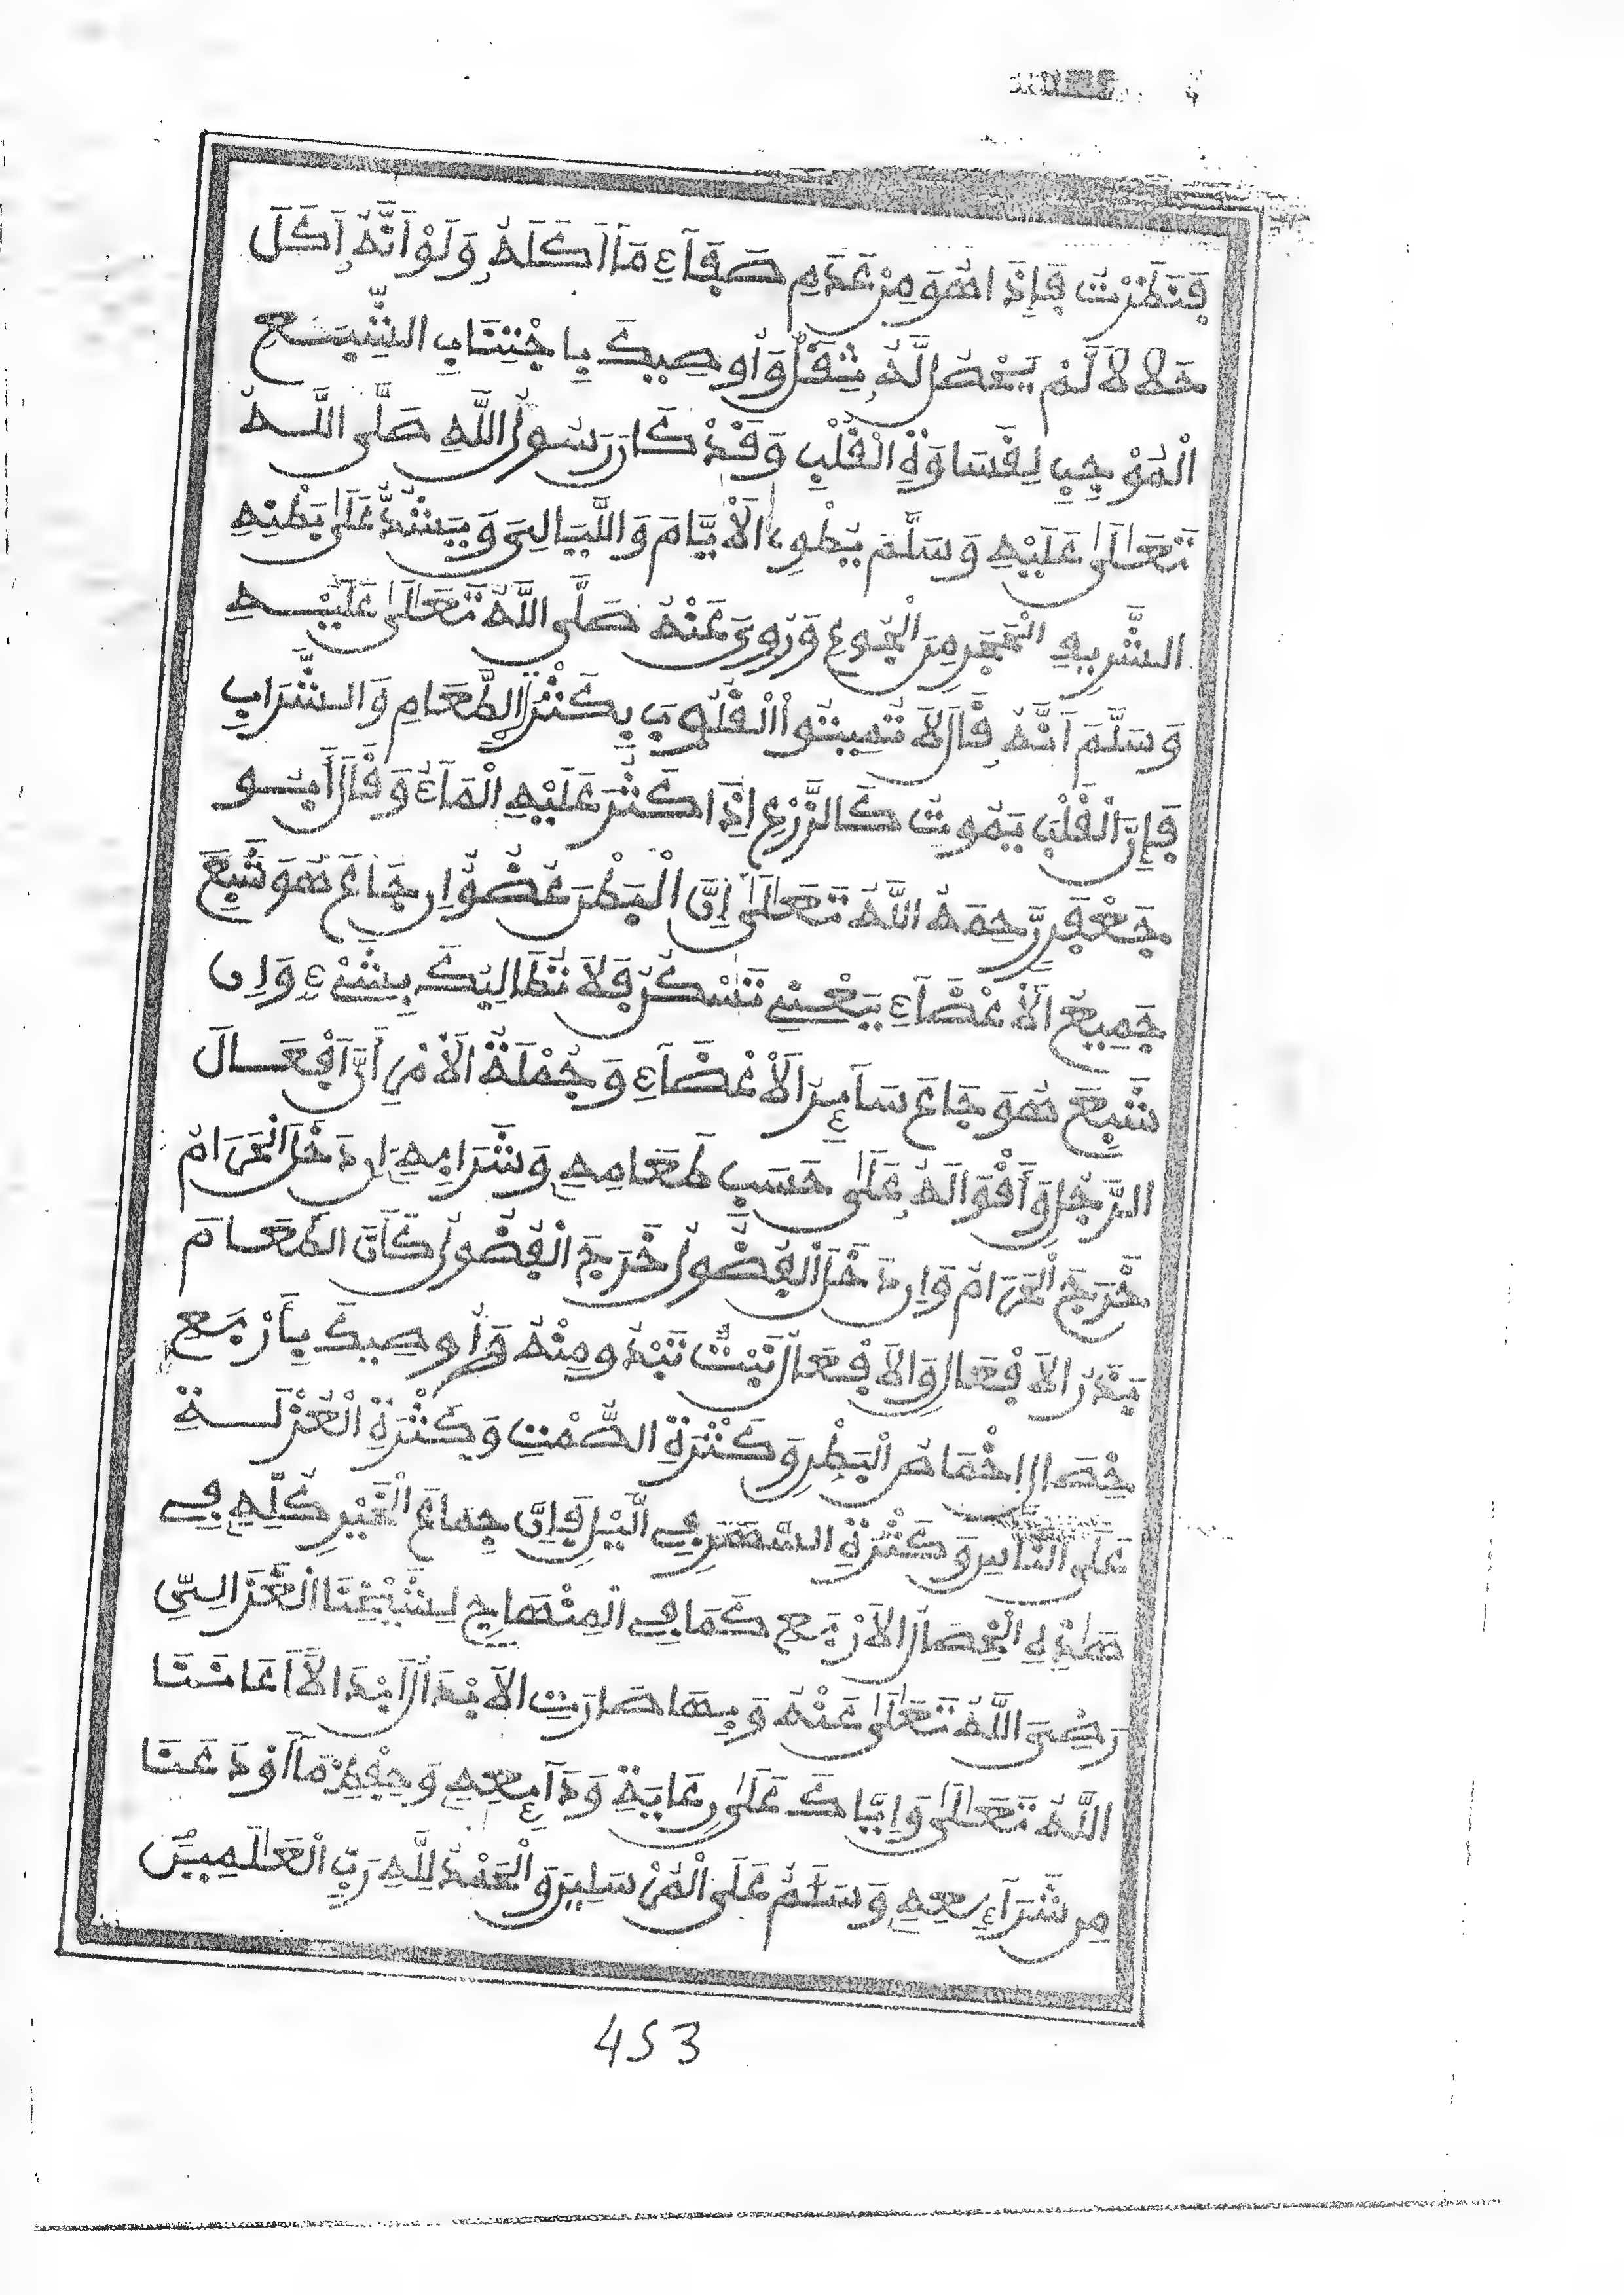 فَنَظَرْتُ فَإِذَا هُوَ مِنْ عَدَمِ صَفَآءِ مَآ أَكَلَهُ وَلَوْ أَنَّهُ أَكَلَ
حَلَالًا لَمْ يَحْصُل لَّهُ ثِقَلٌ وَأُوصِيكَ بِاجْتِنَابِ الشِّبَعِ
الْمُوْجِبِ لِقَسَاوَةِ الْقَلْبِ وَقَدْ كَانَ رَسُولُ اللَّهِ صَلَّى اللَّهُ
تَعَالَىٰ عَلَيْهِ وَسَلَّمَ يَطْوِي الْأَيَّامَ وَاللَّيَالِيَ وَيَشُدُّ عَلَىٰ بَطْنِهِ
الشَّرِيفِ الْحَجَرَ مِنَ الْجُوعِ وَرُوِيَ عَنْهُ صَلَّى اللَّهُ تَعَالَىٰ عَلَيْهِ
وَسَلَّمَ أَنَّهُ قَالَ لَا تُمِيتُوا الْقُلُوبَ بِكَثْرَةِ الطَّعَامِ وَالشَّرَابِ
فَإِنَّ الْقَلْبَ يَمُوتُ كَالزَّرْعِ إِذَا كَثُرَ عَلَيْهِ الْمَآءُ وَقَالَ أَبُو
جَعْفَرٍ رَّحِمَهُ اللَّهُ تَعَالَىٰ إِنَّ الْبَطْنَ عُضْوٌ إِن جَاعَ هُوَ شَبِعَ
جَمِيعُ الْأَعْضَآءِ يَعْنِي تَسْكُنُ فَلَا تُطَالِبُكَ بِشَيْءٍ وَإِن
شَبِعَ هُوَ جَاعَ سَآئِرُ الْأَعْضَآءِ وَجُمْلَةُ الْأَمْرِ أَنَّ أَفْعَالَ
الرَّجُلِ وَأَقْوَالَهُ عَلَىٰ حَسَبِ طَعَامِهِ وَشَرَابِهِ إِن دَخَلَ الْحَرَامُ
خَرَجَ الْحَرَامُ وَإِن دَخَلَ الْفُضُولُ خَرَجَ الْفُضُولُ كَأَنَّ الطَّعَامَ
بَذْرُ الْأَفْعَالِ وَالْأَفْعَالُ نَبْتٌ تَبْدُو مِنْهُ وَأُوصِيكَ بِأَرْبَعِ
خِصَالٍ إِخْمَاصُ الْبَطْنِ وَكَثْرَةِ الصَّمْتِ وَكَثْرَةِ الْعُزْلَةِ
عَلَى النَّاسِ وَكَثْرَةِ السَّهَرِ فِي الَّيْلِ فَإِنَّ جِمَاعَ الْخَيْرِ كُلِّهِ فِي
هَـٰذِهِ الْخِصَالِ الْأَرْبَعِ كَمَا فِي الْمِنْهَاجِ لِشَيْخِنَا الْغَزَالِيِّ
رَضِيَ اللَّهُ تَعَالَىٰ عَنْهُ وَبِهَا صَارَتِ الْأَبْدَالُ أَبْدَالًا أَعَانَنَا
اللَّهُ تَعَالَىٰ وَإِيَّاكَ عَلَىٰ رِعَايَةِ وَدَآئِعِهِ وَحِفْظِ مَآ أَوْدَعَنَا
مِن شَرَآئِعِهِ وَسَلَٰمٌ عَلَى الْمُرْسَلِينَ وَالْحَمْدُ لِلَّهِ رَبِّ الْعَٰلَمِينَ
453